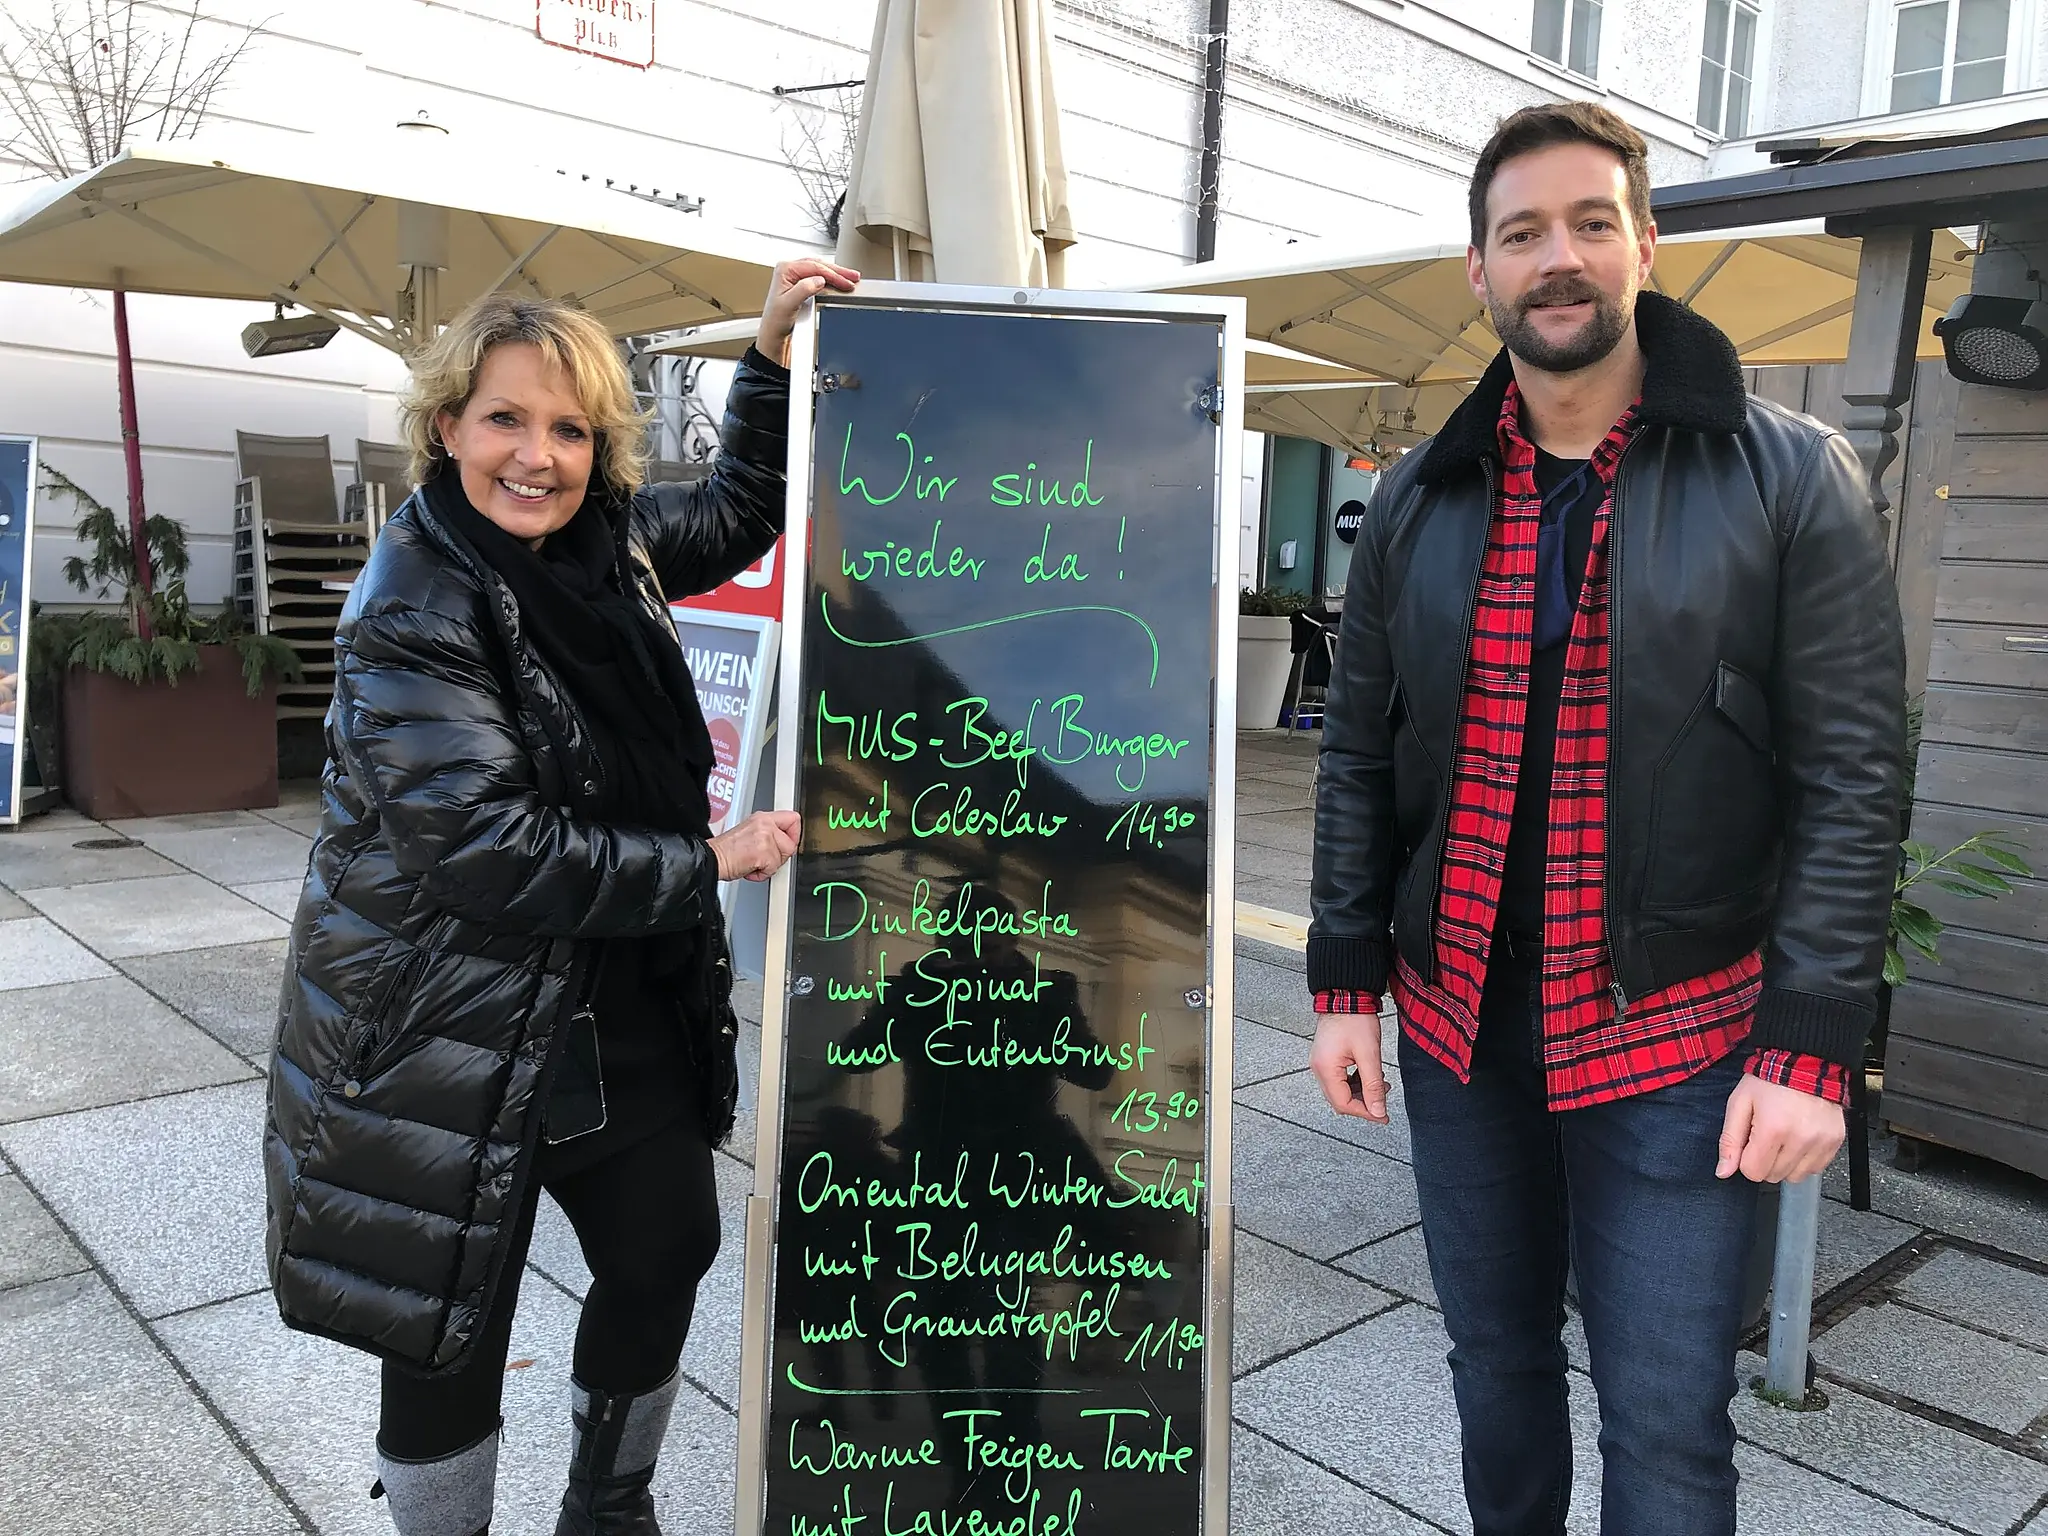 Plak
Wir sind
wieder da!
MUS-Beef Burger
mit Coleslaw 14.90
Dinkelpasta
mit Spinat
und Entenbrust
13.90
Oriental Winter Salat
mit Belugalinsen
und Granatapfel 11.90
Warme Feigen Tarte
mit Lavendel
HWEIN
PUNSCH
KSE
MUS